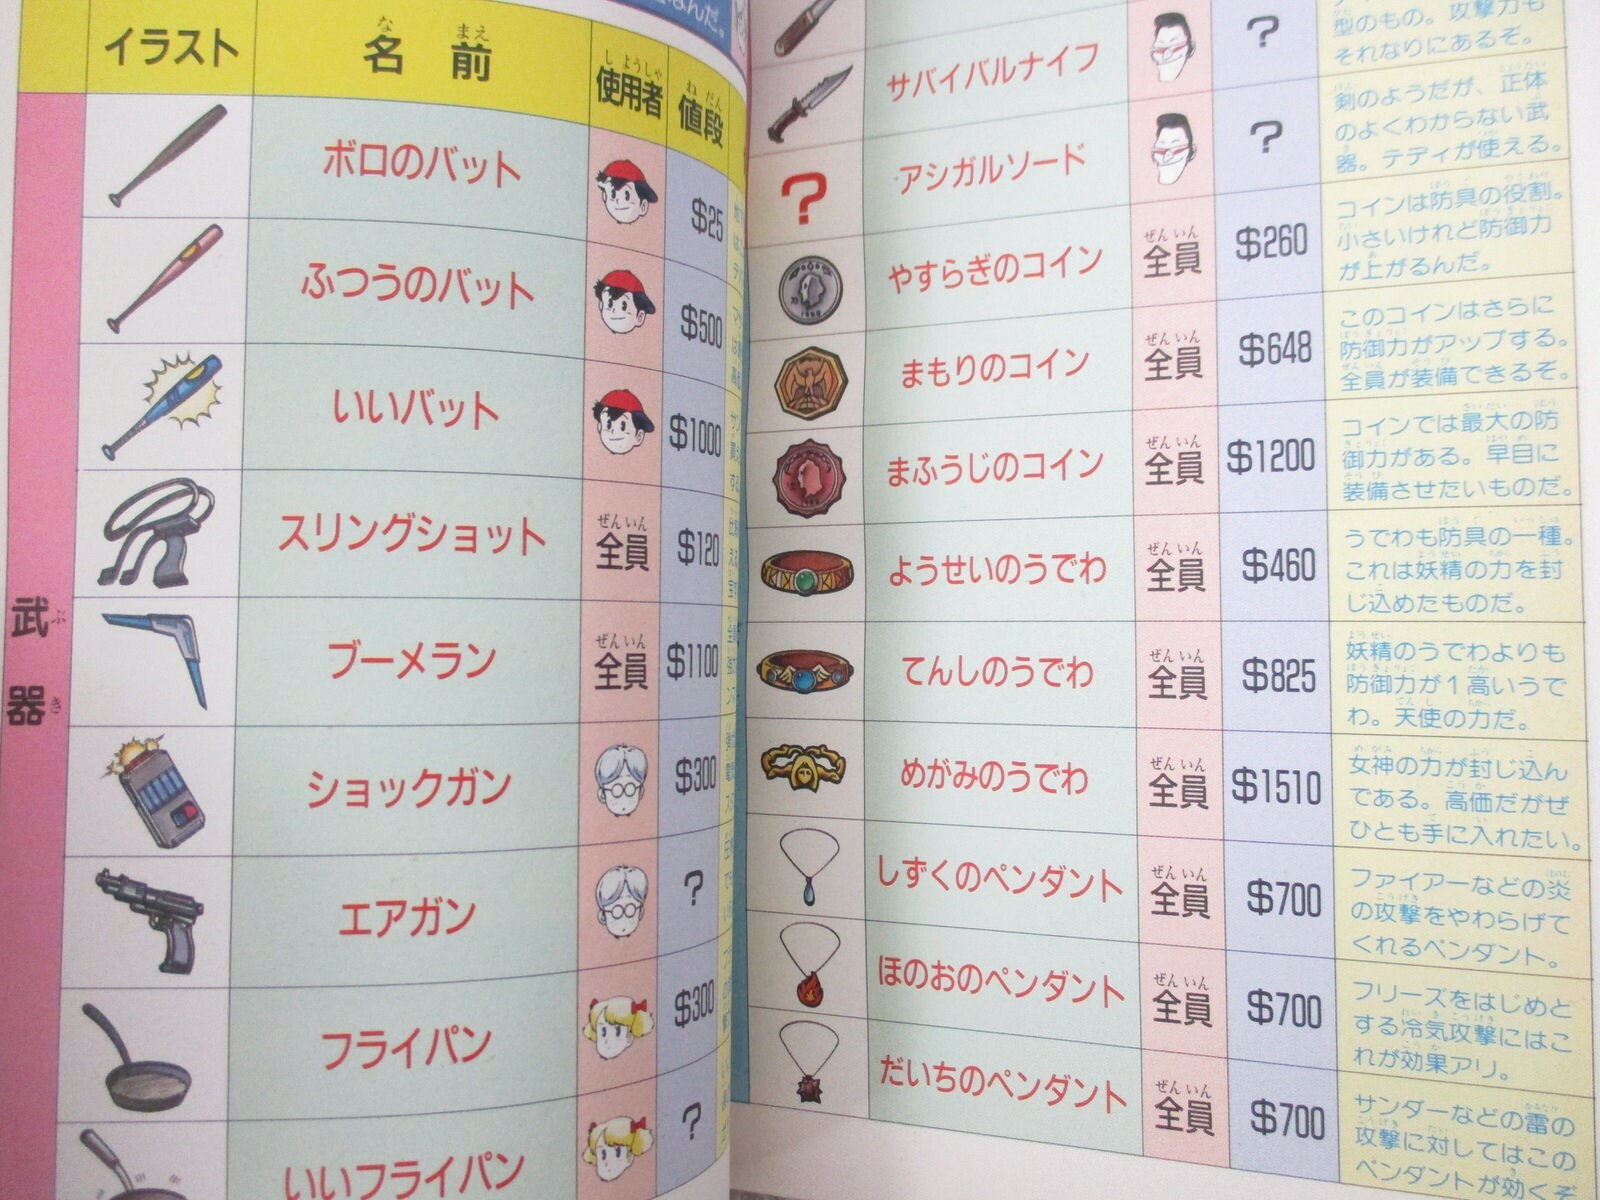 なんだ。
イラスト
名前
なまえ
使用者
しようしゃ
値段
ねだん
武器
ぶき
ボロのバット
$25
ふつうのバット
$500
いいバット
$1000
スリングショット
ぜんいん
全員
$120
ブーメラン
ぜんいん
全員
$1100
ショックガン
$300
エアガン
?
フライパン
$300
いいフライパン
?
型のもの。攻撃力も
それなりにあるぞ。
サバイバルナイフ
?
剣のようだが、正体
のよくわからない武
器。テディが使える。
?
アシガルソード
?
コインは防具の役割。
小さいけれど防御力
が上がるんだ。
やすらぎのコイン
ぜんいん
全員
$260
このコインはさらに
防御力がアップする。
全員が装備できるぞ。
まもりのコイン
ぜんいん
全員
$648
コインでは最大の防
御力がある。早目に
装備させたいものだ。
まふうじのコイン
ぜんいん
全員
$1200
うでわも防具の一種。
これは妖精の力を封
じ込めたものだ。
ようせいのうでわ
ぜんいん
全員
$460
妖精のうでわよりも
防御力が1高いうで
わ。天使の力だ。
てんしのうでわ
ぜんいん
全員
$825
女神の力が封じ込ん
である。高価だがぜ
ひとも手に入れたい。
めがみのうでわ
ぜんいん
全員
$1510
ファイアーなどの炎
の攻撃をやわらげて
くれるペンダント。
しずくのペンダント
ぜんいん
全員
$700
フリーズをはじめと
する冷気攻撃にはこ
れが効果アリ。
ほのおのペンダント
ぜんいん
全員
$700
サンダーなどの雷の
攻撃に対してはこの
ペンダントが効くぞ
だいちのペンダント
ぜんいん
全員
$700